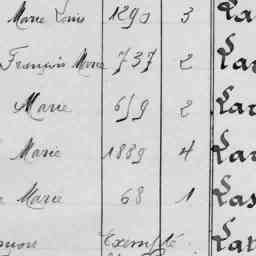 Marie Louis 1290 3 La
François Marie 737 2 Lar
Marie 659 2 Lar
Marie 1889 4 Lar
Marie 68 1 Las
Exempté Lat